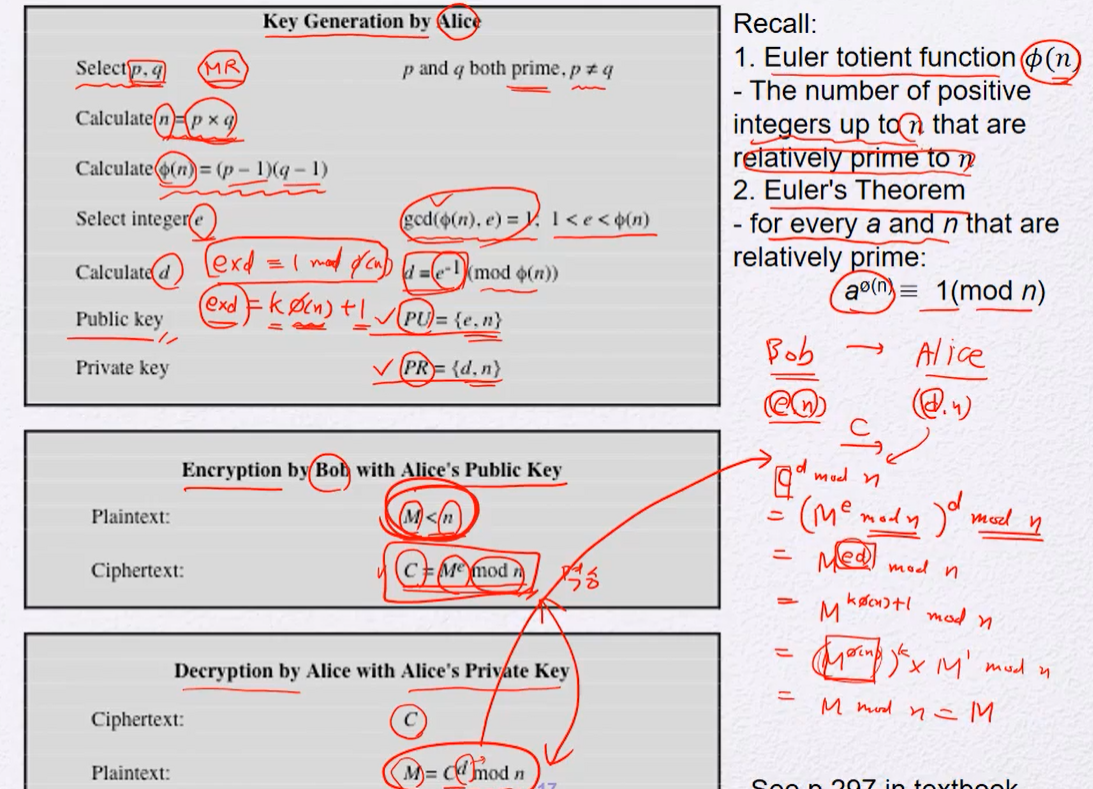 Key Generation by Alice
Select p, q MR p and q both prime, p ≠ q
Calculate n = p × q
Calculate ϕ(n) = (p − 1)(q − 1)
Select integer e gcd(ϕ(n), e) = 1; 1 < e < ϕ(n)
Calculate d [exd ≡ 1 mod ϕ(n)] d = e⁻¹ (mod ϕ(n))
exd = k ϕ(n) + 1
Public key ✓ PU = {e, n}
Private key ✓ PR = {d, n}
Encryption by Bob with Alice's Public Key
Plaintext: M < n
Ciphertext: C = Mᵉ mod n
Decryption by Alice with Alice's Private Key
Ciphertext: C
Plaintext: M = Cᵈ mod n
17
Recall:
1. Euler totient function ϕ(n)
- The number of positive
integers up to n that are
relatively prime to n
2. Euler's Theorem
- for every a and n that are
relatively prime:
a^ø(n) ≡ 1(mod n)
Bob → Alice
(e, n) (d, n)
C
C^d mod n
= (M^e mod n)^d mod n
= M^ed mod n
= M^kø(n)+1 mod n
= (M^ø(n))^k × M^1 mod n
= M mod n = M
See p.297 in textbook